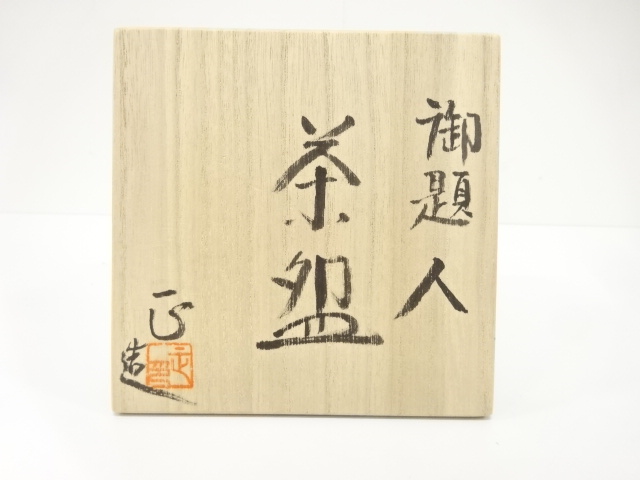 御題 人
茶盌
正造